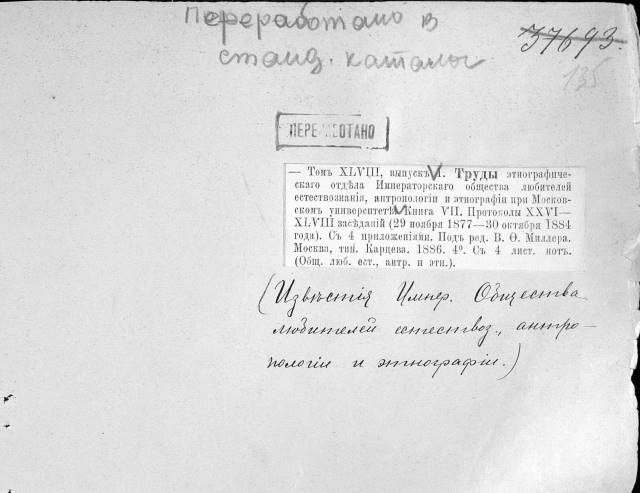 Переработано в
станд. каталог
37693.
135
ПЕРЕ ОТАНО
— Томъ XLVIII, выпускъ 1. Труды этнографиче-
скаго отдѣла Императорскаго общества любителей
естествознанія, антропологіи и этнографіи при Москов-
скомъ университетѣ. Книга VII. Протоколы XXVI—
XLVIII засѣданій (29 ноября 1877—30 октября 1884
года). Съ 4 приложеніями. Подъ ред. В. Ѳ. Миллера.
Москва, тип. Карцева. 1886. 4⁰. Съ 4 лист. нотъ.
(Общ. люб. ест., антр. и этн.).
(Извѣстія Импер. Общества
любителей естествоз., антро-
пологіи и этнографіи.)